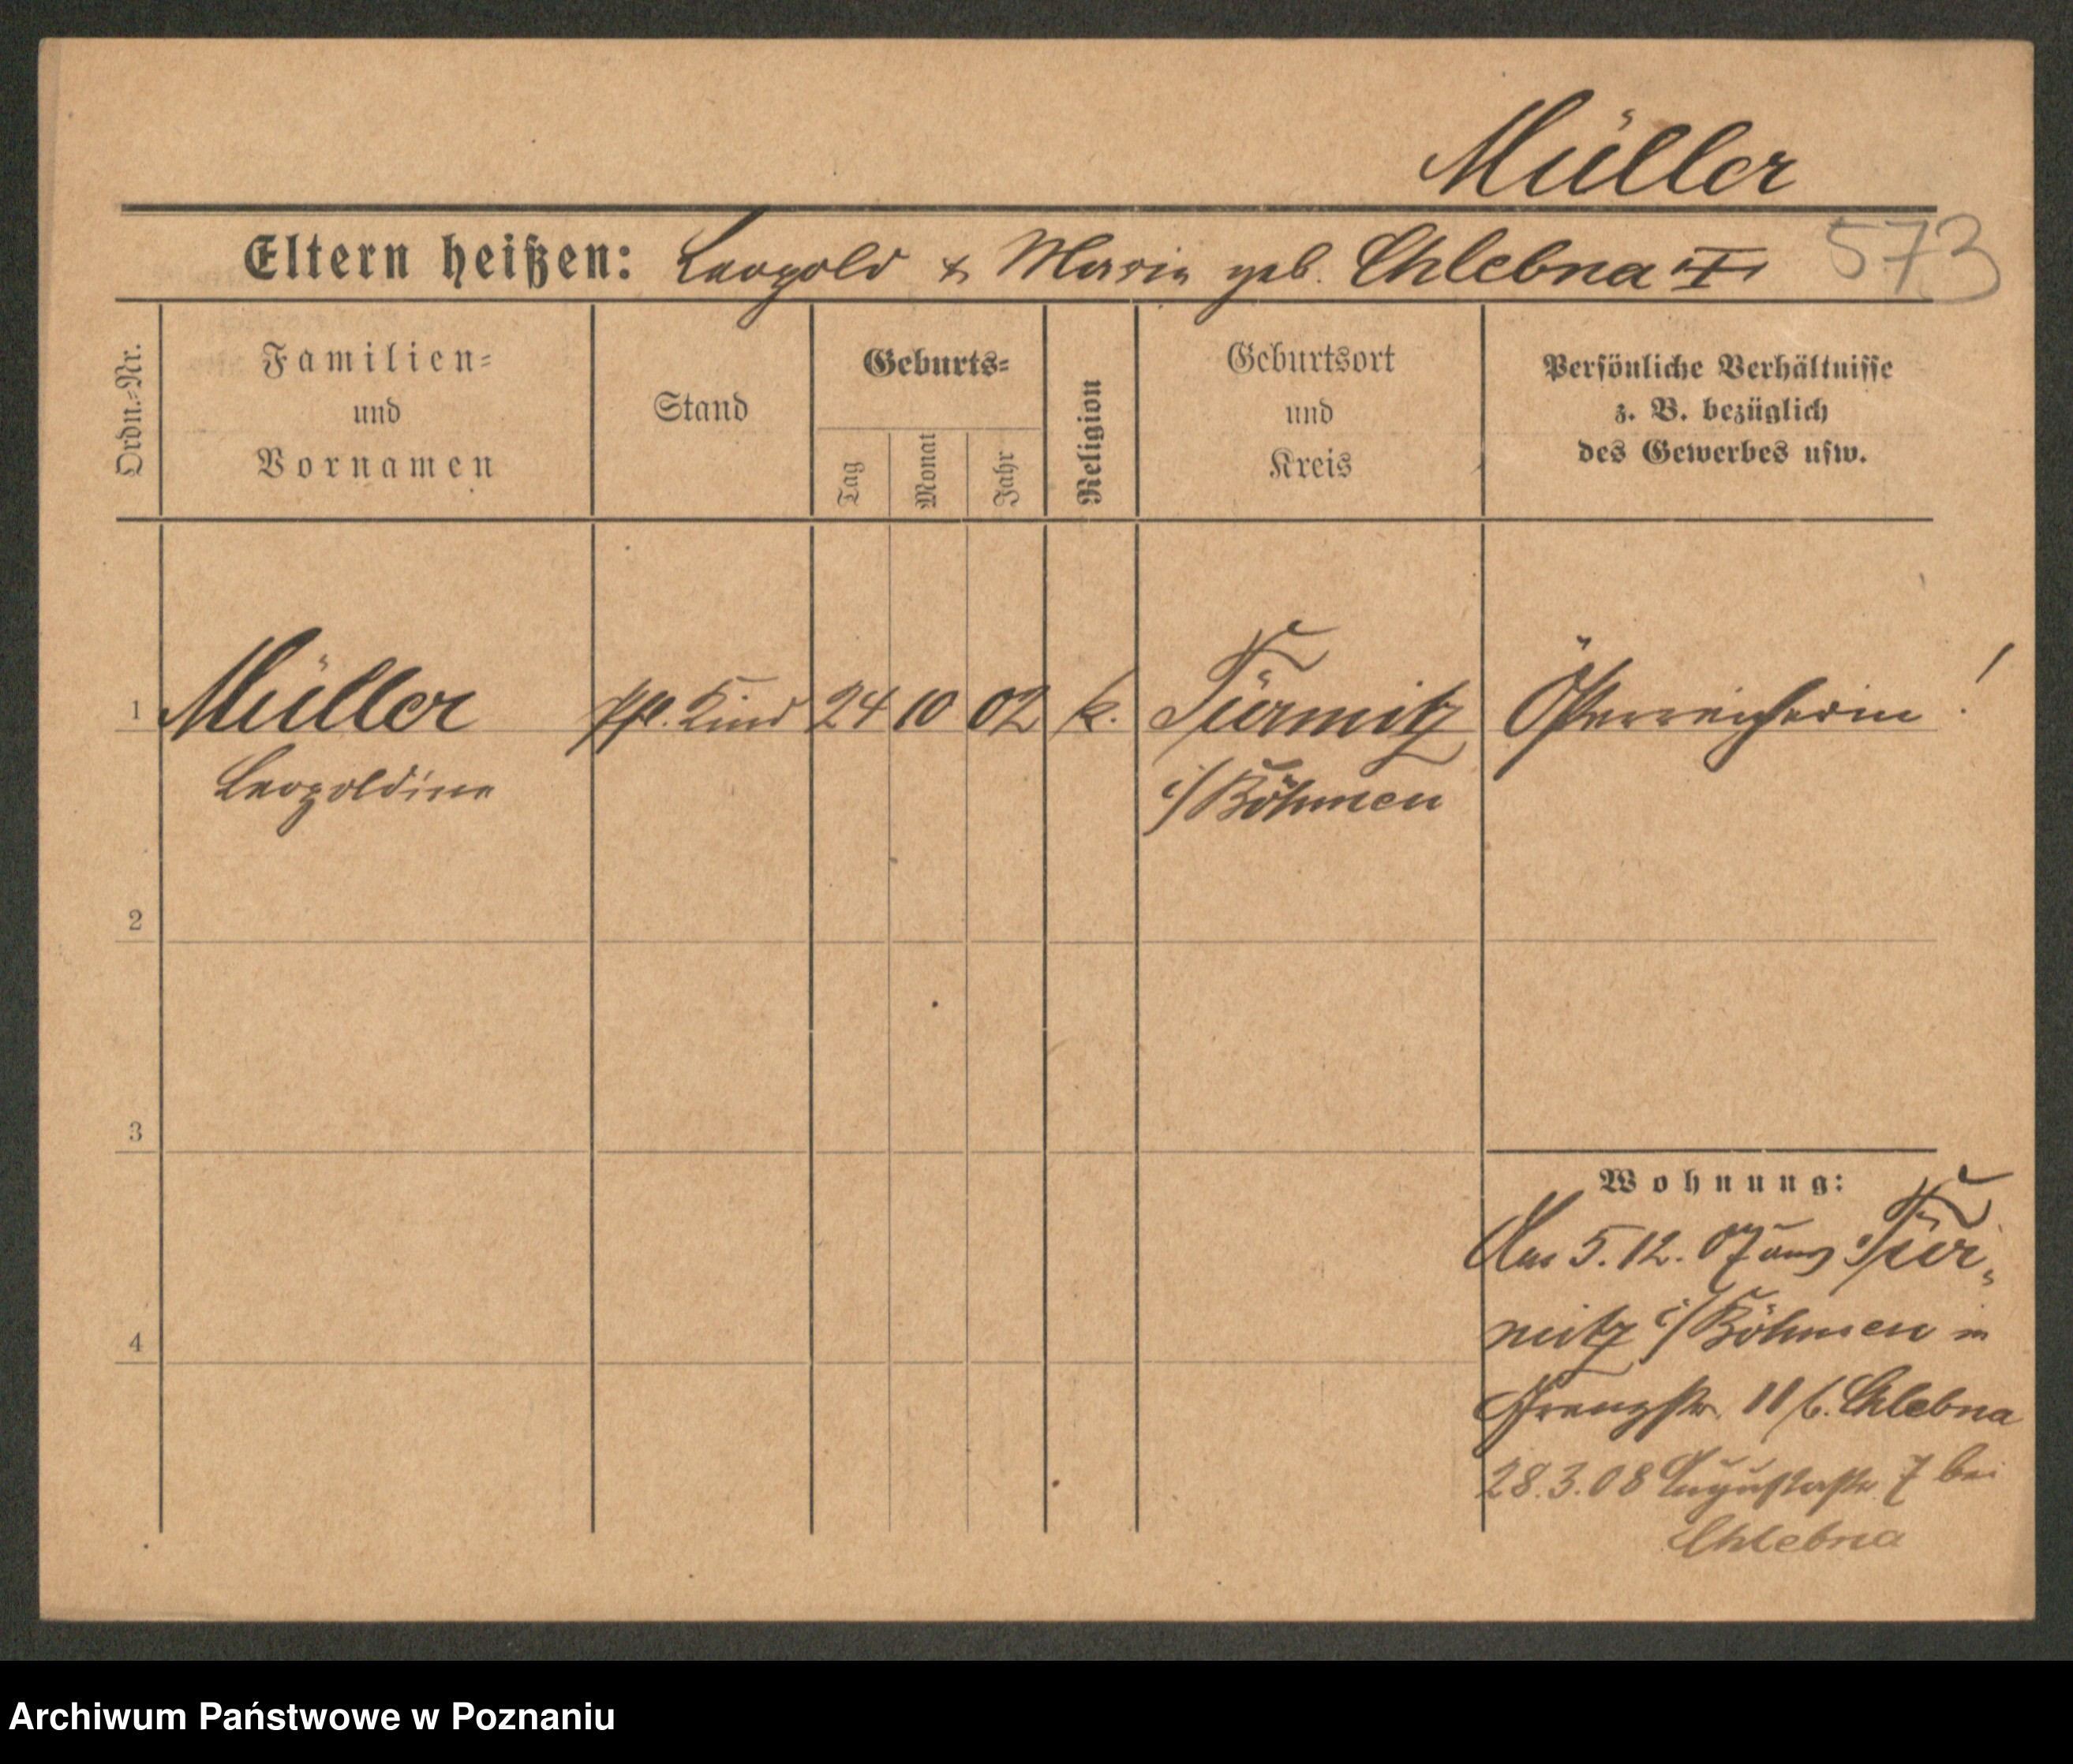 Müller
Eltern heißen: Leopold & Maria geb. Chlebna I 573
Ordn.=Nr.
Familien=
und
Vornamen
Stand
Geburts=
Tag
Monat
Jahr
Religion
Geburtsort
und
Kreis
Persönliche Verhältnisse
z. B. bezüglich
des Gewerbes usw.
1 Müller pfl. Kind 24 10 02 k. Türmitz Österreicherin !
Leopoldine i/Böhmen
2
3
Wohnung:
Am 5.12.07 aus Tür-
4
mitz i/Böhmen in
11 b. Chlebna
28.3.08 Augustastr. 7 bei
Chlebna
Archiwum Państwowe w Poznaniu